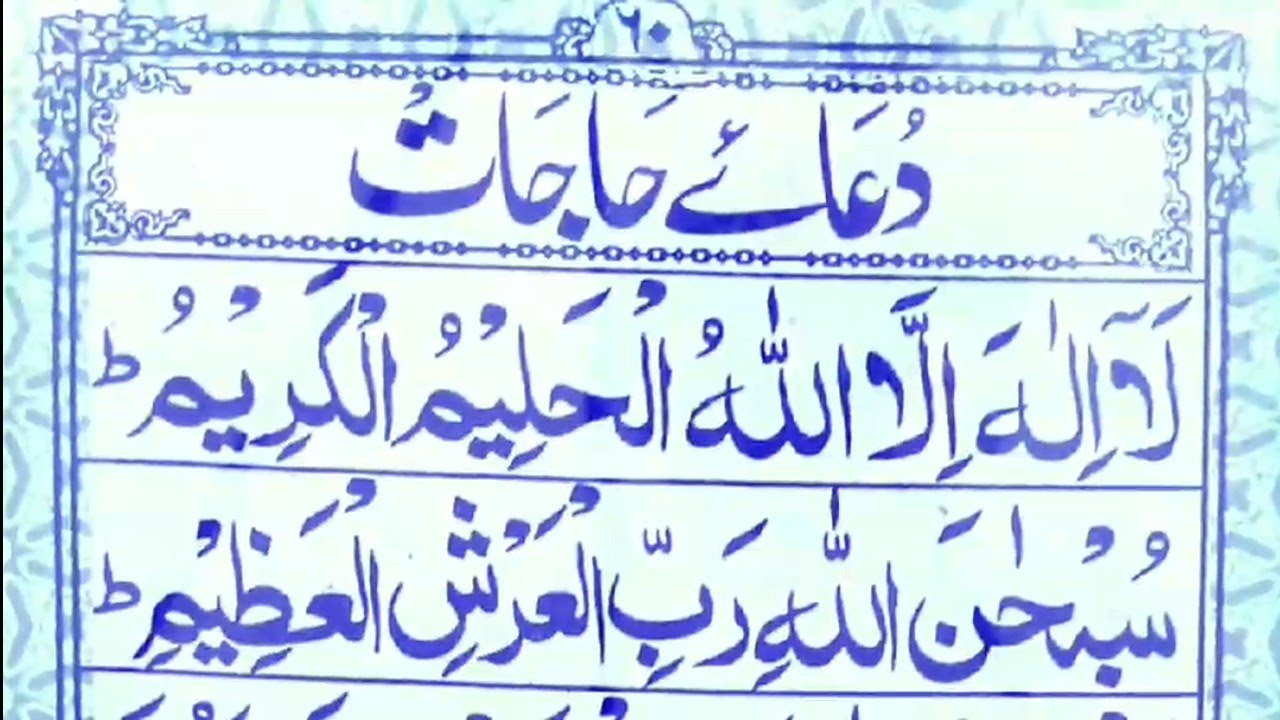 ٦٠
دُعَائے حَاجَاتُ
لَآ اِلٰهَ اِلَّا اللّٰهُ الْحَلِيْمُ الْكَرِيْمُ ؕ
سُبْحٰنَ اللّٰهِ رَبِّ الْعَرْشِ الْعَظِيْمِ ؕ